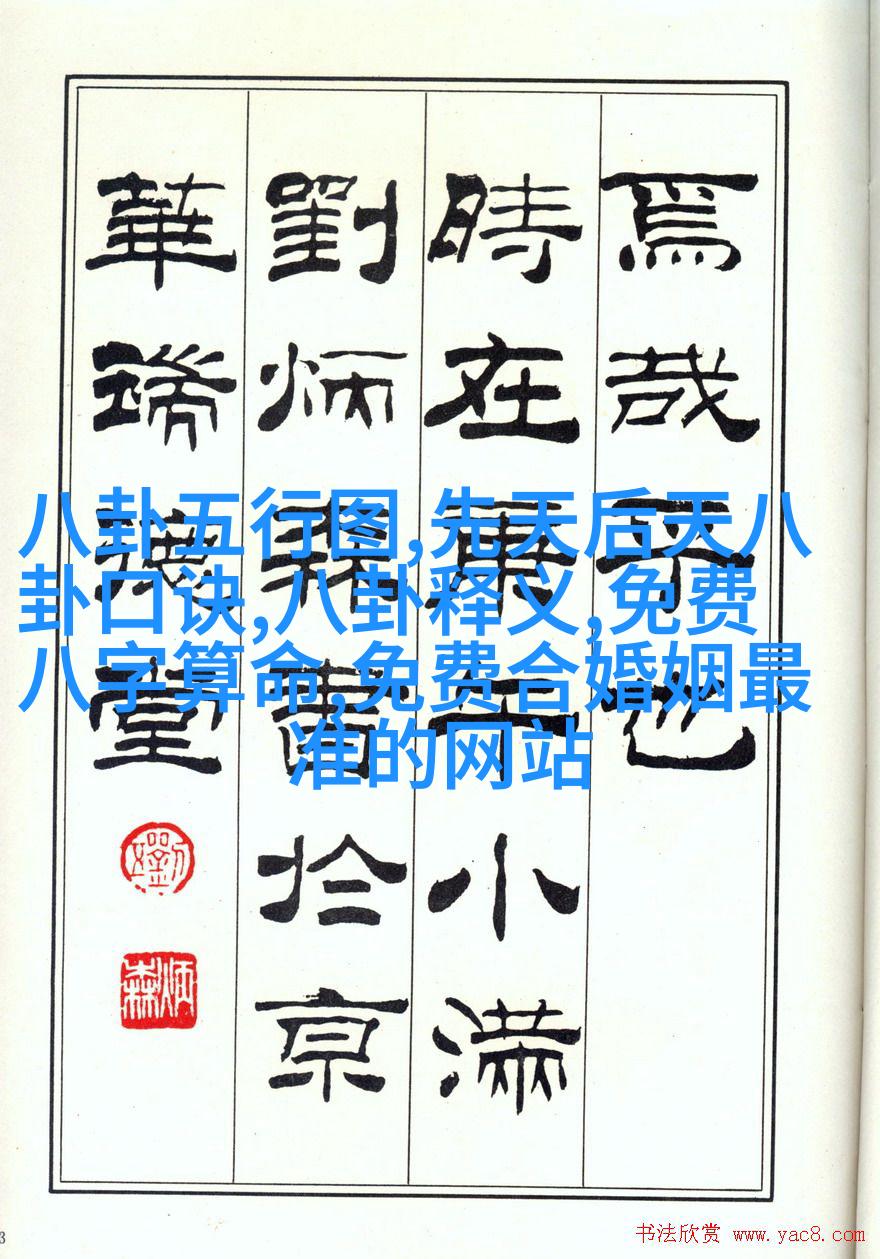 焉哉乎也
時在庚午小滿
劉炳森書於京
華堂
八卦五行图,先天后天八
卦口诀,八卦释义,免费
八字算命,免费合婚姻最
准的网站
炳森
3
书法欣赏 www.yac8.com